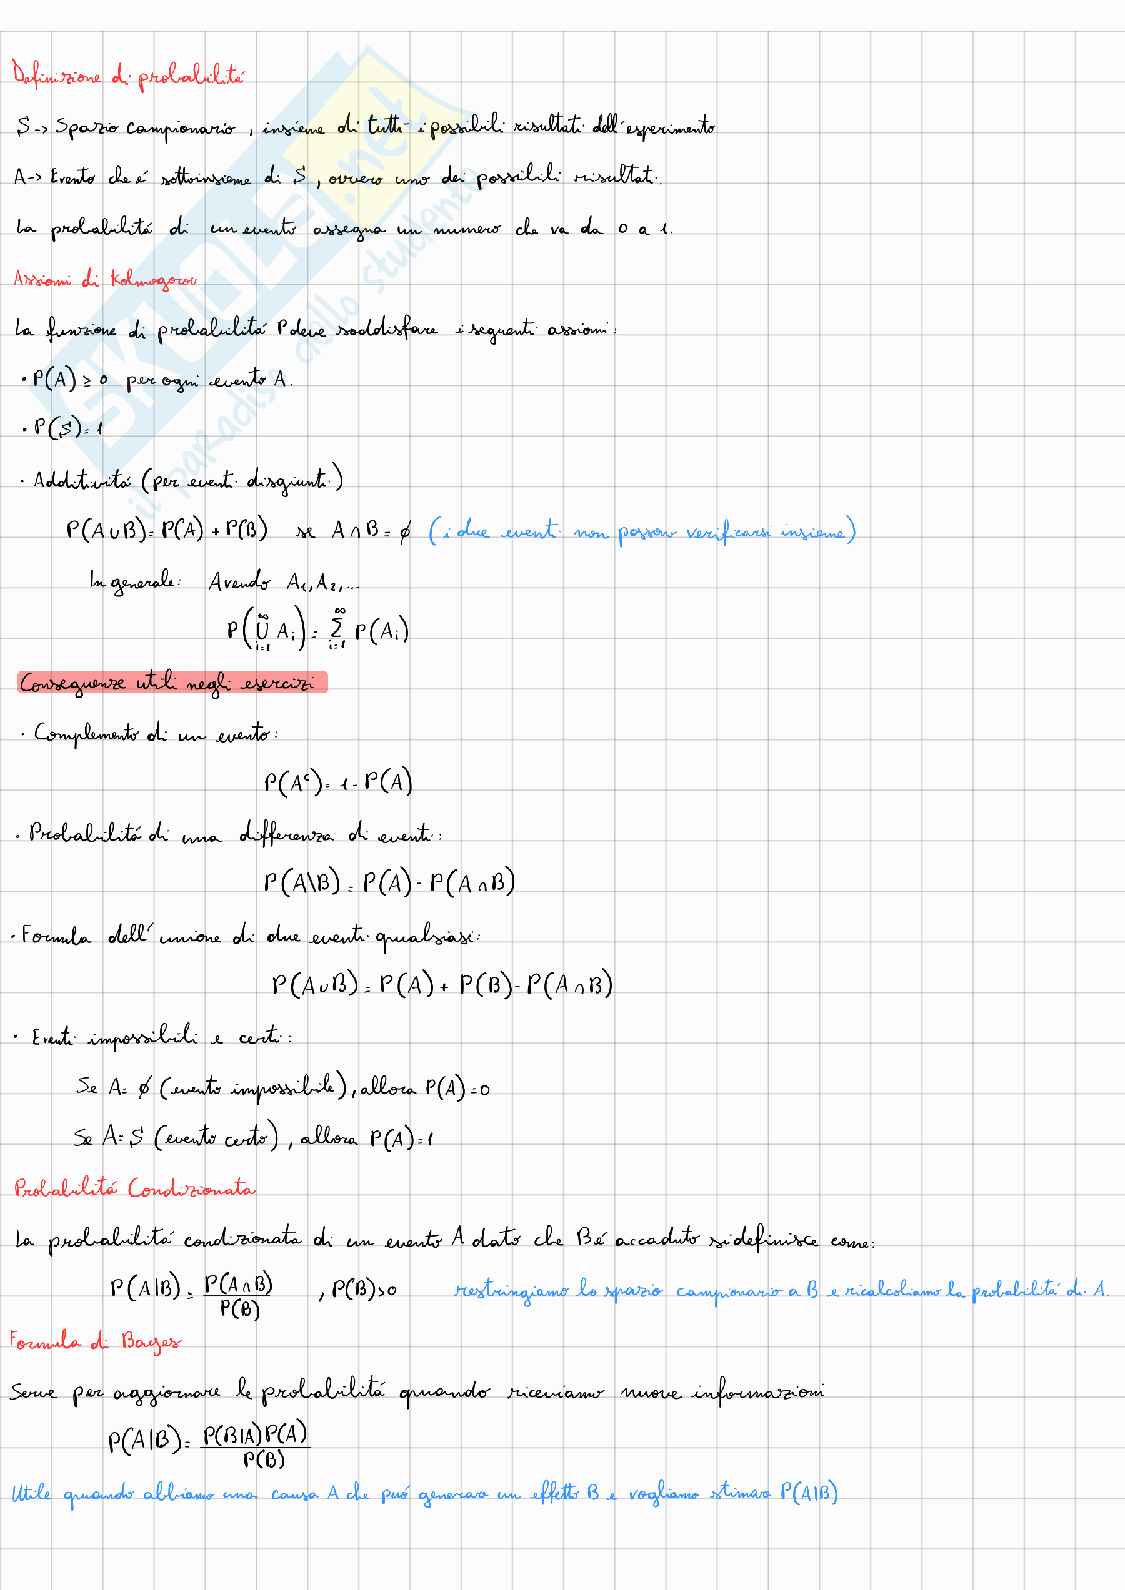 Definizione di probabilitá
S -> Spazio campionario, insieme di tutti i possibili risultati dell'esperimento
A -> Evento che é sottoinsieme di S, ovvero uno dei possibili risultati.
La probabilitá di un evento assegna un numero che va da 0 a 1.
Assiomi di Kolmogorov
La funzione di probabilitá P deve soddisfare i seguenti assiomi:
· P(A) ≥ 0 per ogni evento A.
· P(S) = 1
· Additivitá (per eventi disgiunti)
P(A∪B) = P(A) + P(B) se A∩B = ∅ (i due eventi non possono verificarsi insieme)
In generale: Avendo A₁, A₂, ...
P(⋃_{i=1}^{∞} A_i) = ∑_{i=1}^{∞} P(A_i)
Conseguenze utili negli esercizi
· Complemento di un evento:
P(Aᶜ) = 1 - P(A)
· Probabilitá di una differenza di eventi:
P(A\B) = P(A) - P(A∩B)
· Formula dell'unione di due eventi qualsiasi:
P(A∪B) = P(A) + P(B) - P(A∩B)
· Eventi impossibili e certi:
Se A = ∅ (evento impossibile), allora P(A) = 0
Se A = S (evento certo), allora P(A) = 1
Probabilitá Condizionata
La probabilitá condizionata di un evento A dato che B é accaduto si definisce come:
P(A|B) = P(A∩B) / P(B) , P(B)>0 restringiamo lo spazio campionario a B e ricalcoliamo la probabilitá di A.
Formula di Bayes
Serve per aggiornare le probabilitá quando riceviamo nuove informazioni
P(A|B) = P(B|A)P(A) / P(B)
Utile quando abbiamo una causa A che puó generare un effetto B e vogliamo stimare P(A|B)
SKUOLA.net
il paradiso dello studente